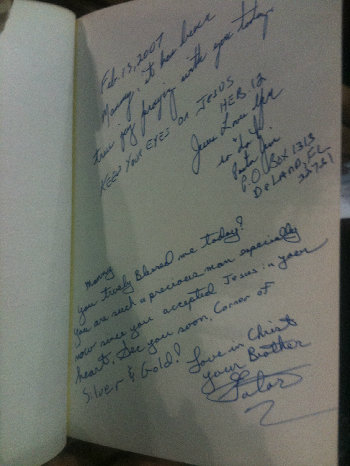 Feb. 13, 2007
Manny, it has been
true joy praying with you today.
KEEP YOUR EYES ON JESUS
HEB 12
Jesus Loves you
so do I
Pastor Jim
P.O. BOX 1313
DELAND, FL
32721
Manny
you truely Blessed me today!
you are such a precious man especially
now since you accepted Jesus in your
heart. See you soon, Corner of
Silver & Gold! Love in Christ
your Brother